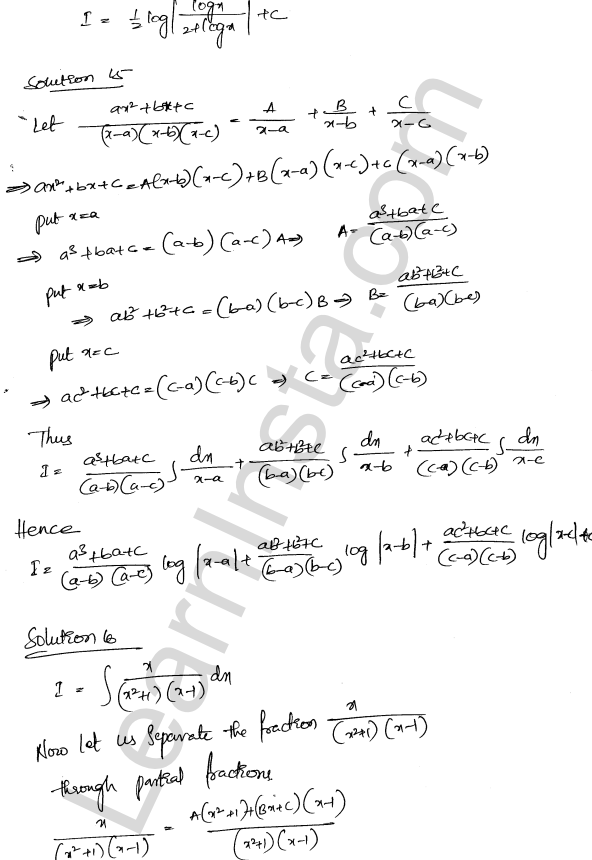 I = 1/2 log|logx/2+logx| +c
Solution 15
Let ax²+bx+c/(x-a)(x-b)(x-c) = A/x-a + B/x-b + C/x-c
⇒ ax²+bx+c = A(x-b)(x-c)+B(x-a)(x-c)+c(x-a)(x-b)
put x=a
⇒ a³+ba+c = (a-b)(a-c)A ⇒ A = a³+ba+c/(a-b)(a-c)
put x=b
⇒ ab²+b²+c = (b-a)(b-c)B ⇒ B = ab²+b²+c/(b-a)(b-c)
put x=c
⇒ ac²+bc+c = (c-a)(c-b)c ⇒ C = ac²+bc+c/(c-a)(c-b)
Thus
I = a³+ba+c/(a-b)(a-c) ∫ dx/x-a + ab²+b²+c/(b-a)(b-c) ∫ dx/x-b + ac²+bc+c/(c-a)(c-b) ∫ dx/x-c
Hence
I = a³+ba+c/(a-b)(a-c) log|x-a| + ab²+b²+c/(b-a)(b-c) log|x-b| + ac²+bc+c/(c-a)(c-b) log|x-c|+c
Solution 16
I = ∫ x/(x²+1)(x-1) dx
Now let us separate the fraction x/(x²+1)(x-1)
through partial fractions
x/(x²+1)(x-1) = A(x²+1)+(Bx+c)(x-1)/(x²+1)(x-1)
LearnInsta.com